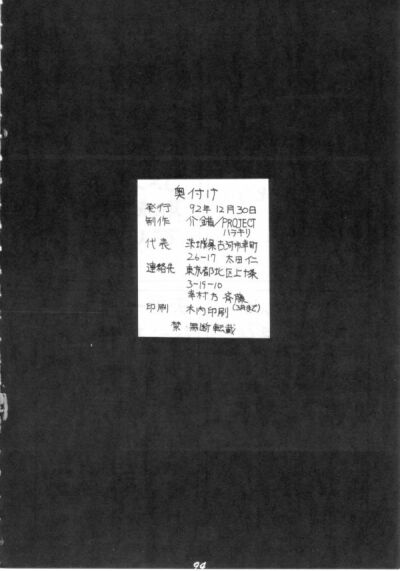 奥付け
発行 92年12月30日
制作 介錯/PROJECT
ハラキリ
代表 茨城県古河市幸町
26-17 太田仁
連絡先 東京都北区上十条
3-19-10
幸村方 斉藤
印刷 木内印刷(3月まで)
禁 無断転載
94